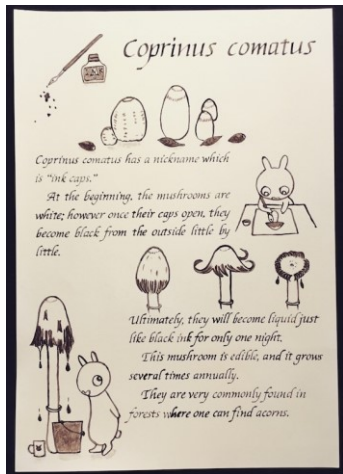 Coprinus comatus
Coprinus comatus has a nickname which
is "ink caps."
At the beginning, the mushrooms are
white; however once their caps open, they
become black from the outside little by
little.
Ultimately, they will become liquid just
like black ink for only one night.
This mushroom is edible, and it grows
several times annually.
They are very commonly found in
forests where one can find acorns.